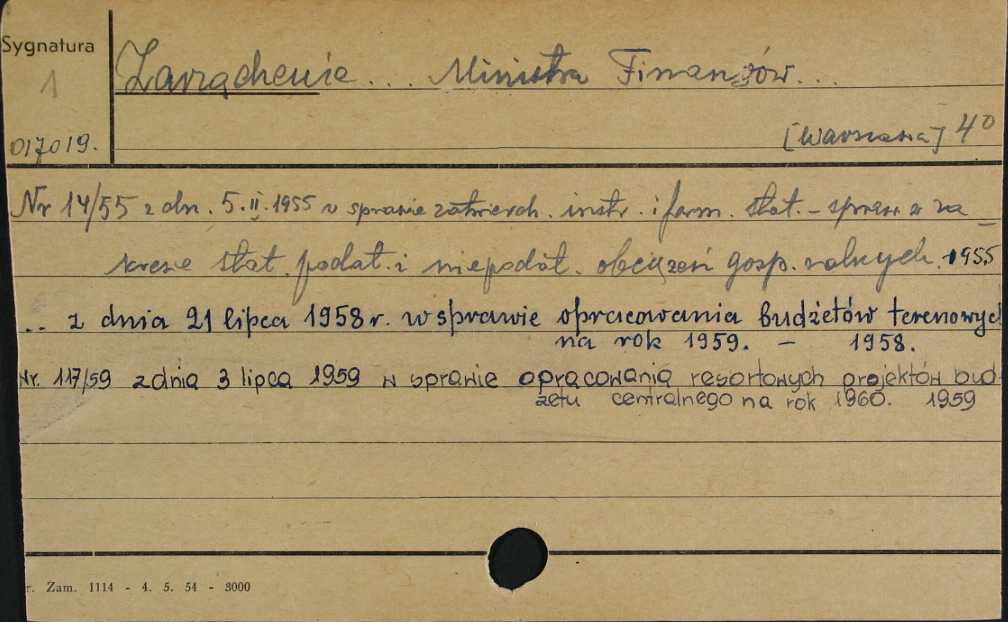 Sygnatura
1
017019.
Zarządzenie ... Ministra Finansów...
[Warszawa] 4°
Nr 14/55 z dn. 5.II.1955 w sprawie zatwierdz. instr. i form. stat. - spraw. z za
kresie stat. podat. i niepodat. obciążeń gosp. rolnych. 1955
... z dnia 21 lipca 1958 r. w sprawie opracowania budżetów terenowych
na rok 1959. - 1958.
Nr. 117/59 z dnia 3 lipca 1959 w sprawie opracowania resortowych projektów bud-
żetu centralnego na rok 1960. 1959
r. Zam. 1114 - 4. 5. 54 - 3000